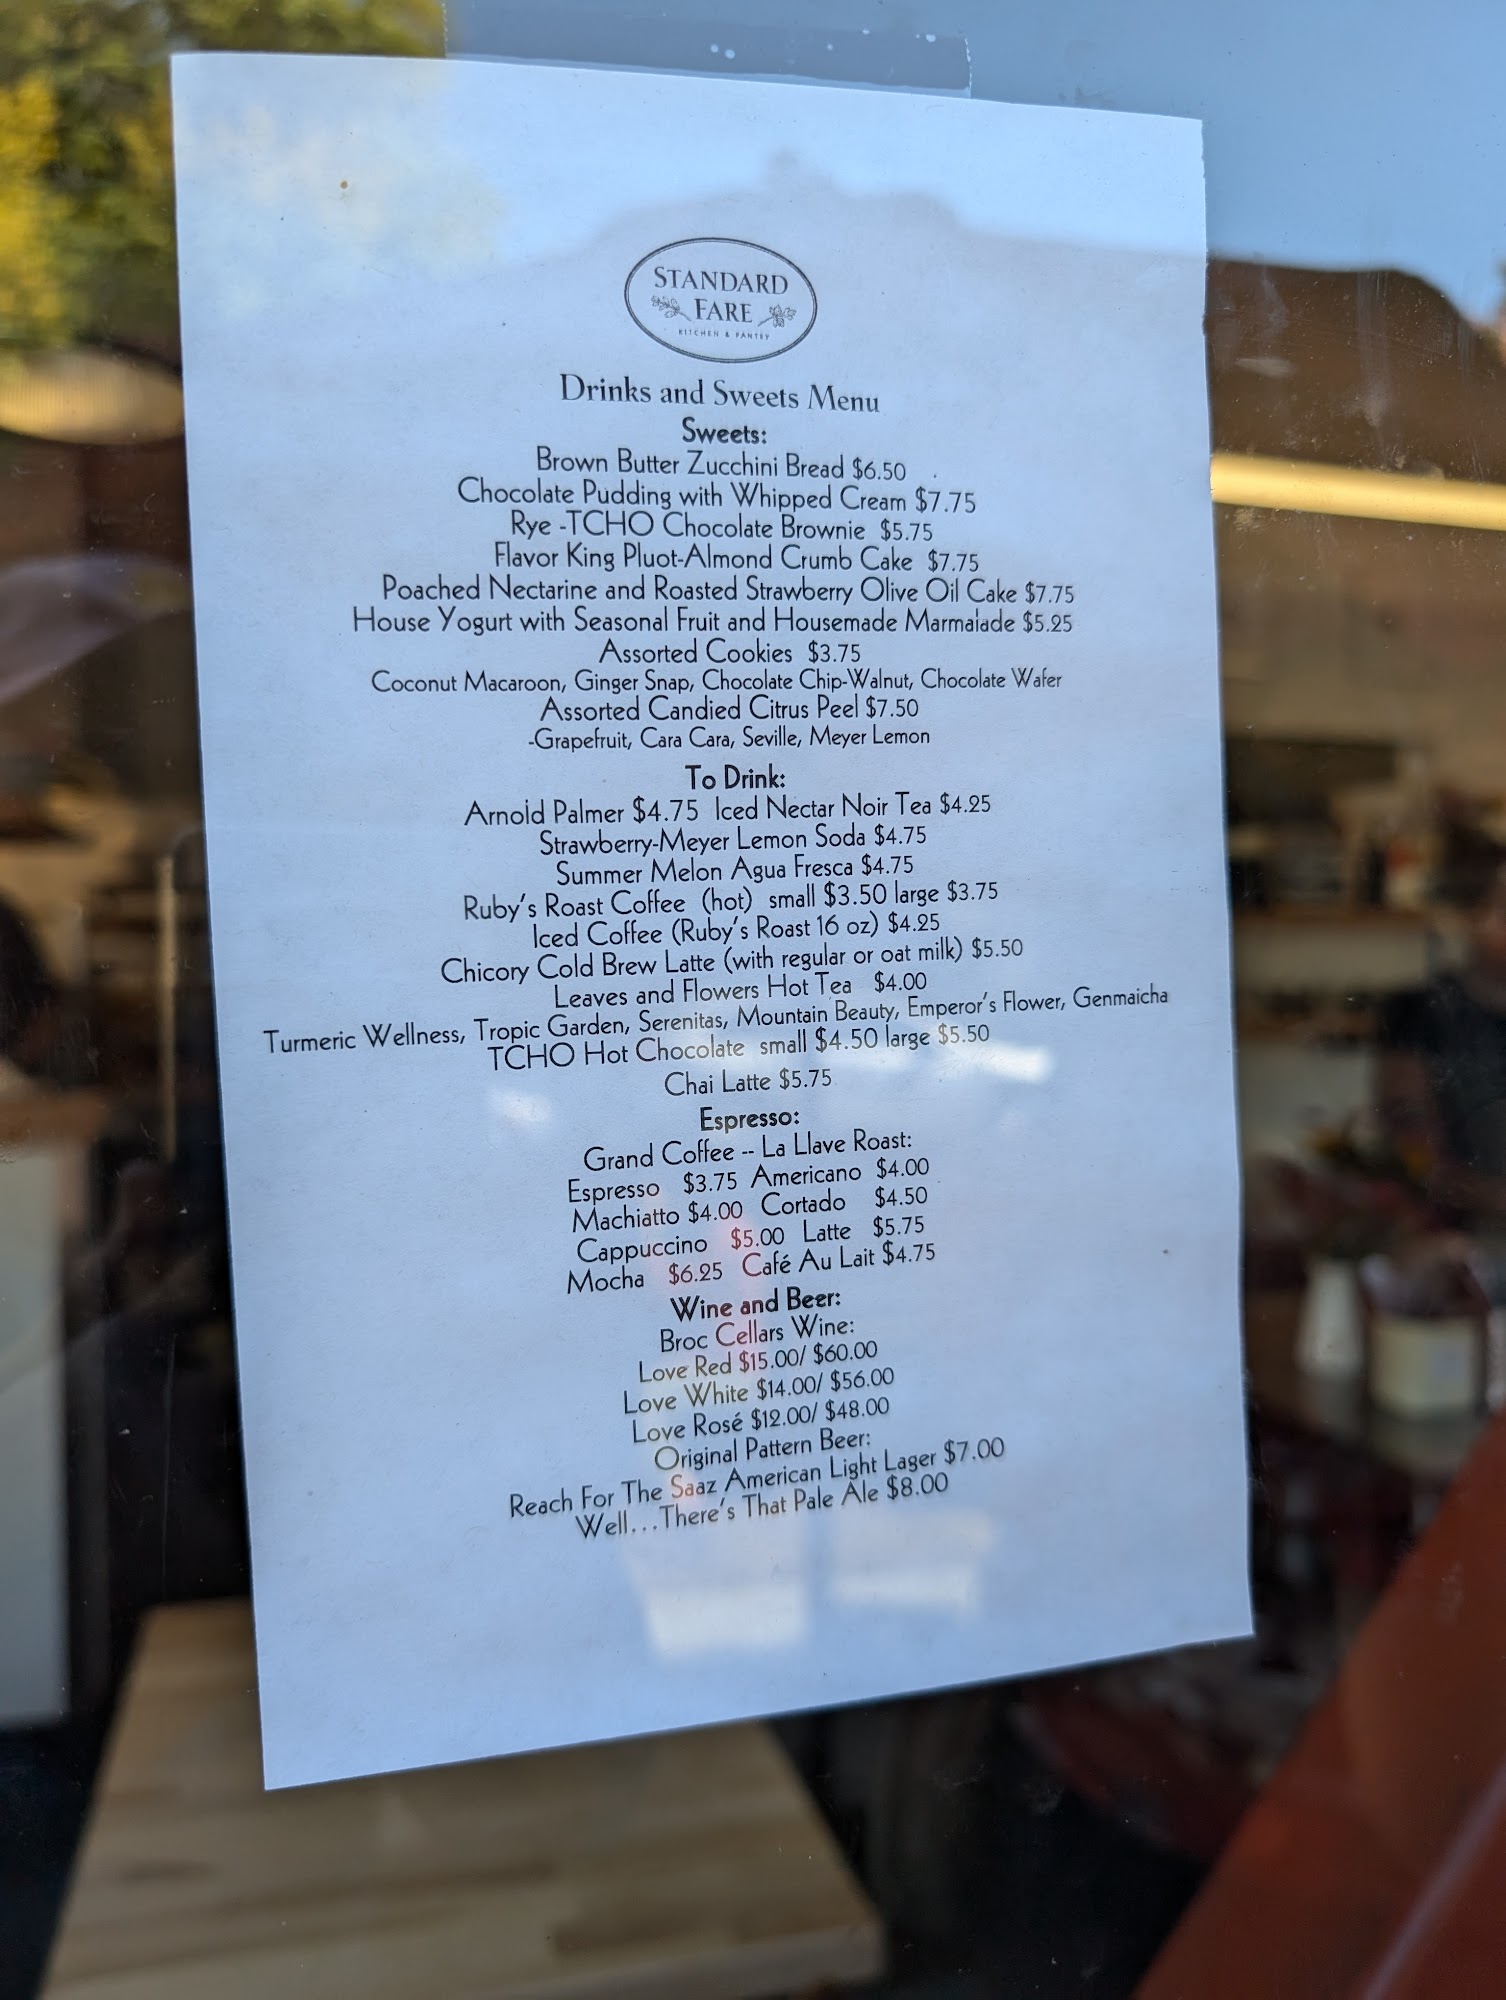 STANDARD
FARE
KITCHEN & PANTRY
Drinks and Sweets Menu
Sweets:
Brown Butter Zucchini Bread $6.50
Chocolate Pudding with Whipped Cream $7.75
Rye -TCHO Chocolate Brownie $5.75
Flavor King Pluot-Almond Crumb Cake $7.75
Poached Nectarine and Roasted Strawberry Olive Oil Cake $7.75
House Yogurt with Seasonal Fruit and Housemade Marmalade $5.25
Assorted Cookies $3.75
Coconut Macaroon, Ginger Snap, Chocolate Chip-Walnut, Chocolate Wafer
Assorted Candied Citrus Peel $7.50
-Grapefruit, Cara Cara, Seville, Meyer Lemon
To Drink:
Arnold Palmer $4.75 Iced Nectar Noir Tea $4.25
Strawberry-Meyer Lemon Soda $4.75
Summer Melon Agua Fresca $4.75
Ruby's Roast Coffee (hot) small $3.50 large $3.75
Iced Coffee (Ruby's Roast 16 oz) $4.25
Chicory Cold Brew Latte (with regular or oat milk) $5.50
Leaves and Flowers Hot Tea $4.00
Turmeric Wellness, Tropic Garden, Serenitas, Mountain Beauty, Emperor's Flower, Genmaicha
TCHO Hot Chocolate small $4.50 large $5.50
Chai Latte $5.75
Espresso:
Grand Coffee -- La Llave Roast:
Espresso $3.75 Americano $4.00
Machiatto $4.00 Cortado $4.50
Cappuccino $5.00 Latte $5.75
Mocha $6.25 Café Au Lait $4.75
Wine and Beer:
Broc Cellars Wine:
Love Red $15.00/ $60.00
Love White $14.00/ $56.00
Love Rosé $12.00/ $48.00
Original Pattern Beer:
Reach For The Saaz American Light Lager $7.00
Well...There's That Pale Ale $8.00